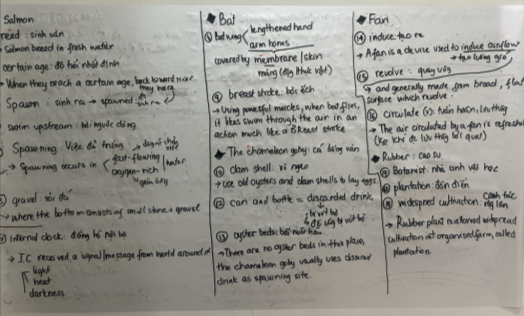 Salmon
reed: sinh sản
Salmon breed in fresh water
certain age: độ tuổi nhất định
When they reach a certain age, back toward river
they
Spawn: sinh ra → spawned
swim upstream: bơi ngược dòng
Spawning: Việc đẻ trứng
Spawning occurs in fast-flowing water
oxygen-rich
giàu oxy
gravel: sỏi đá
where the bottom consists of small stone & gravel
internal clock: đồng hồ nội bộ
IC received a signal/message from world around
light
heat
darkness
Bat
bat wing lengthened hand
arm bones
covered by membrane / skin
màng
breast stroke: bơi ếch
Using powerful muscles, when bat flies,
it likes swim through the air in an
action much like a Breast stroke
The chameleon goby: cá bống vân
clam shell: vỏ ngao
use old oysters and clam shells to lay eggs
can and bottle = discarded drink
bị vứt bỏ
oyster beds:
There are no oyster beds in this place,
the chameleon goby usually uses discared
drink as spawning site.
Fan
14 induce: tạo ra
A fan is a device used to induce airflow
tạo luồng gió
15 revolve: quay vòng
and generally made from broad, flat
surface which revolve
16 circulate (v): tuần hoàn, lưu thông
The air circulated by a fan is refresh
Rubber: cao su
Botanist: nhà sinh vật học
plantation: đồn điền
widespred cultivation canh tác
Rubber plant is a formed widespread
cultivation at organised farm, called
plantation.